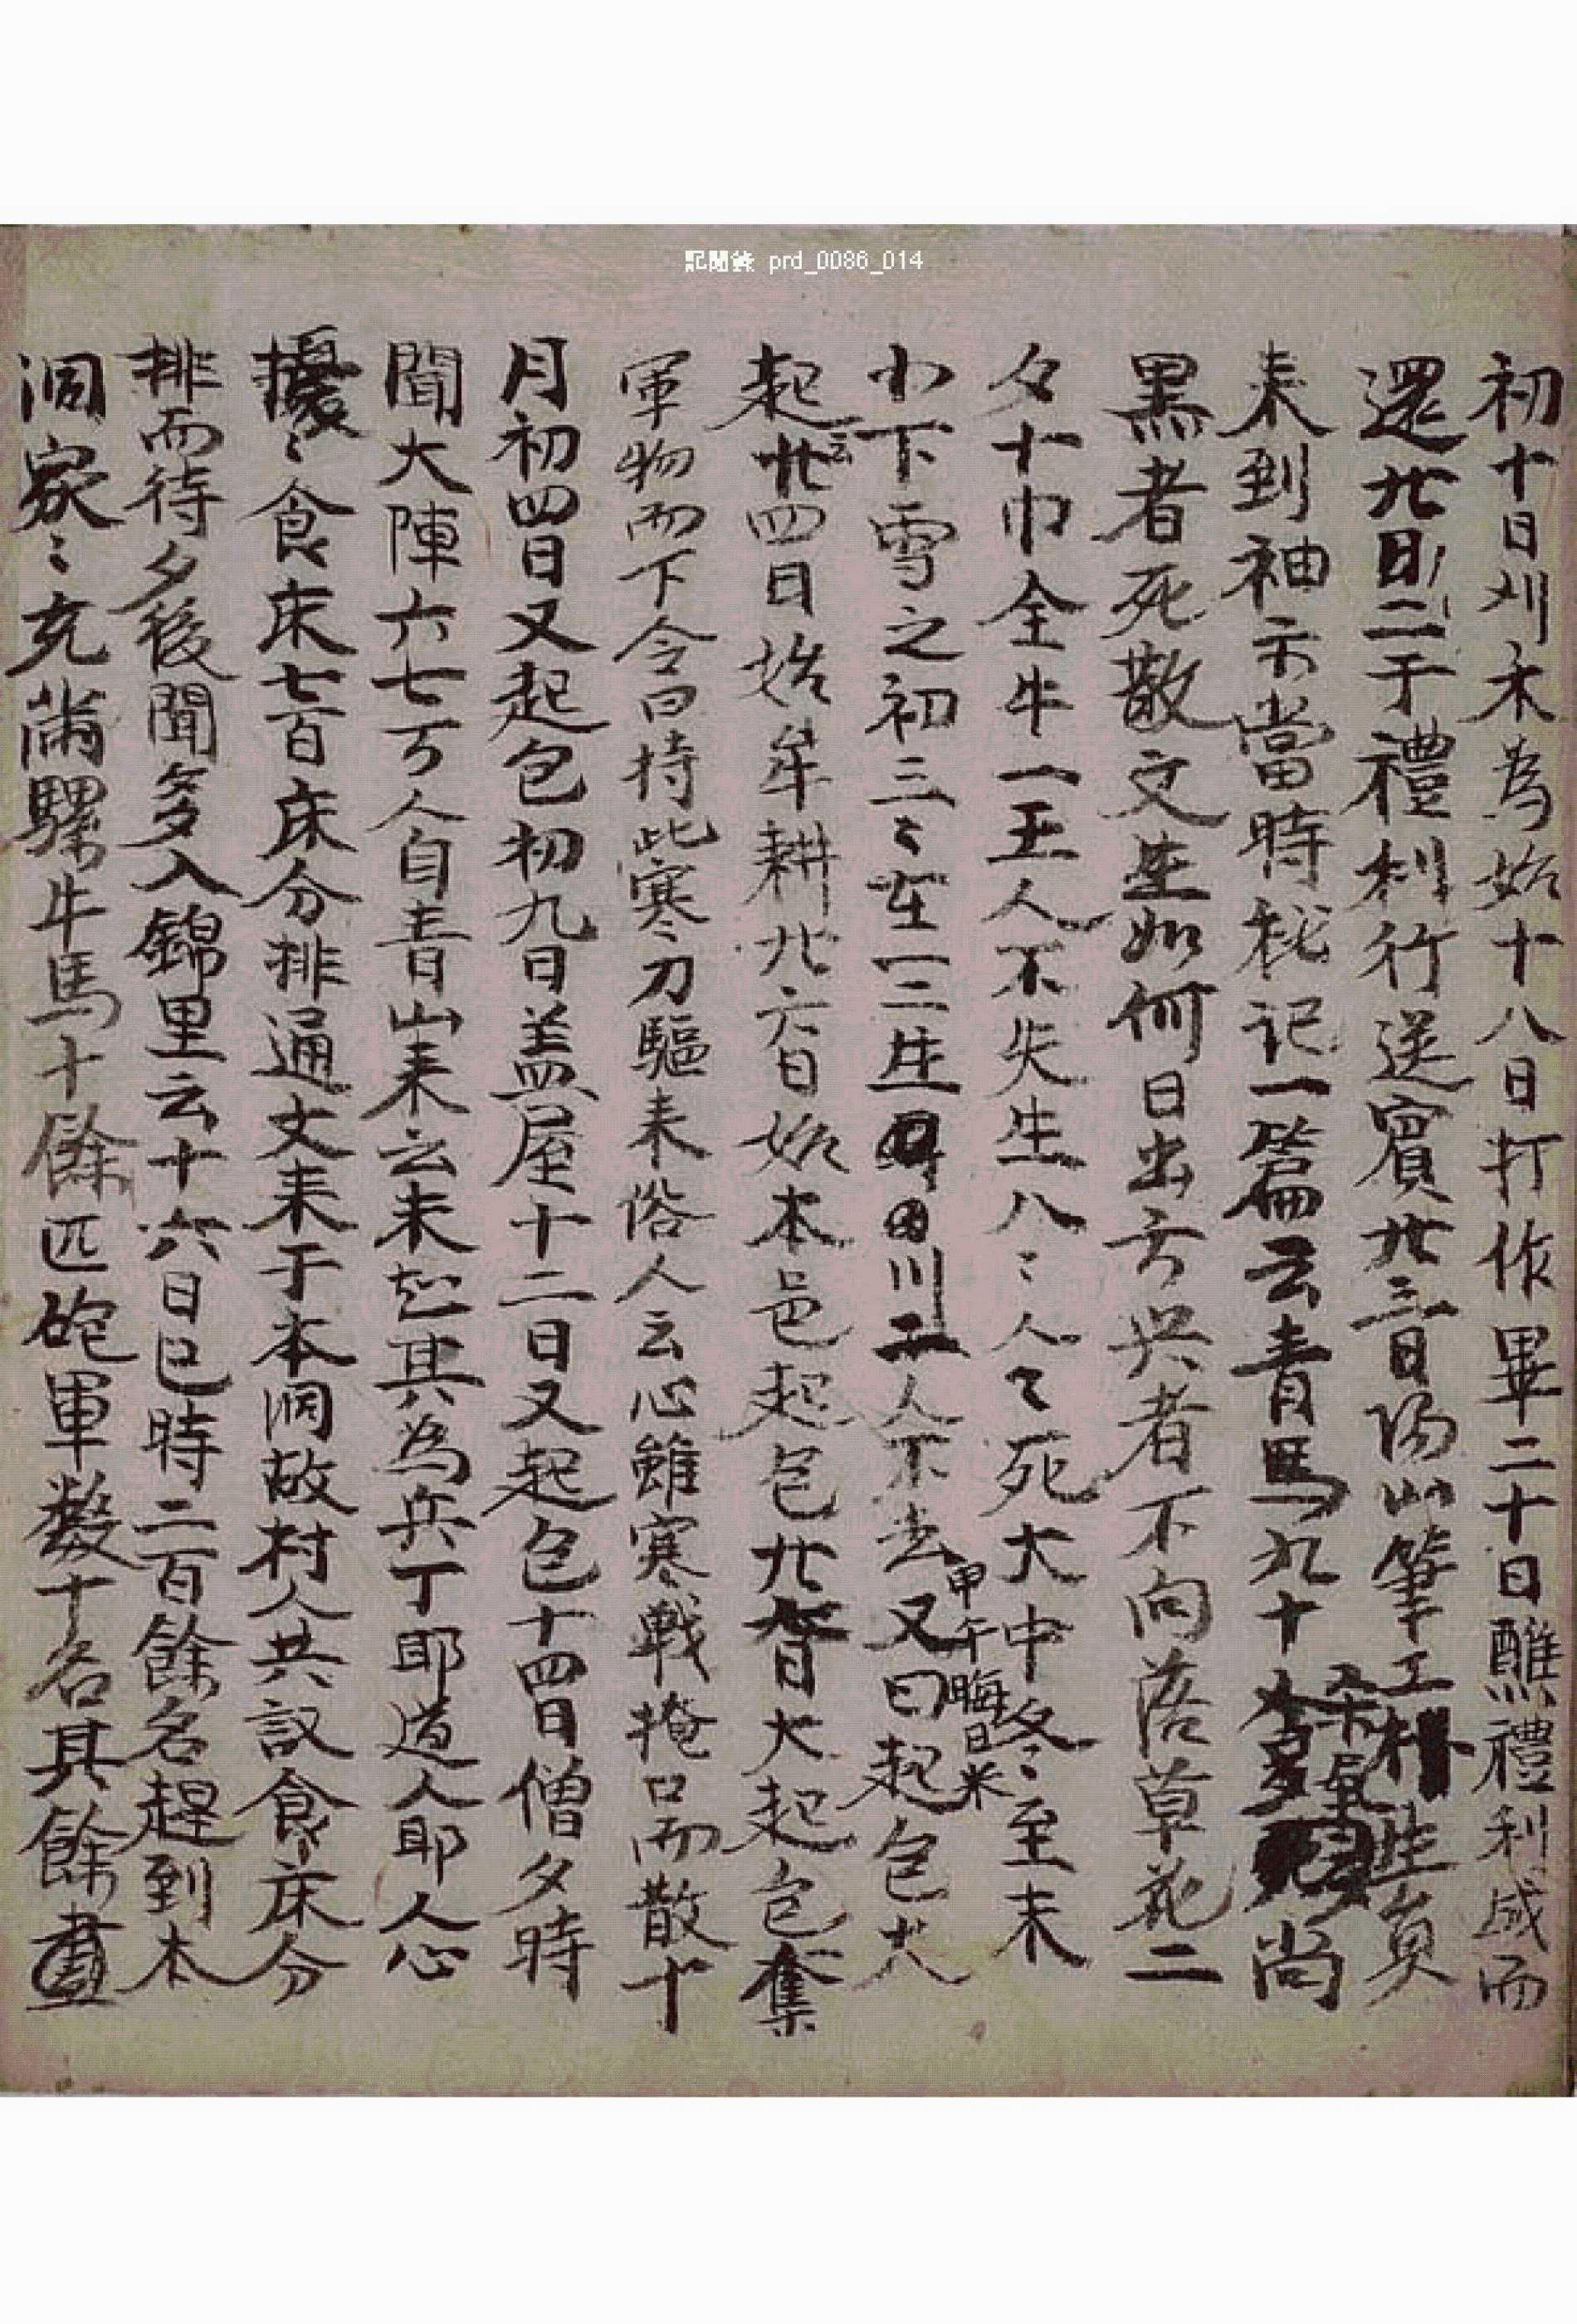 記聞錄 prd_0086_014
初十日刈禾為始十八日打作畢二十日醮禮利成而
還廿日二于禮利行送賓廿三日陽山筆工朴生員
来到袖示當時秘记一篇云青馬九十 尚
黑者死散文生如何日出方兴者不向落草花二
夕十巾全牛一王人不失生八〻人〻死大中冬〻至末
小下雪之初三〻在一二生 川 人不去又曰起包大
甲午晦日米
起廿四日始牟耕廿六日始本邑起包廿 日大起包奪
云
軍物而下令曰持此寒刀驅来俗人云心雖寒戰掩口而散十
月初四日又起包初九日盖屋十二日又起包十四日僧夕時
聞大陣六七万人自青山来云未知其為兵丁耶道人耶人心
擾〻食床七百床分排通文来于本洞故村人共議食床分
排而待夕後聞多入錦里云十六日巳時二百餘名趕到本
洞家〻充滿騾牛馬十餘匹砲軍數十名其餘盡